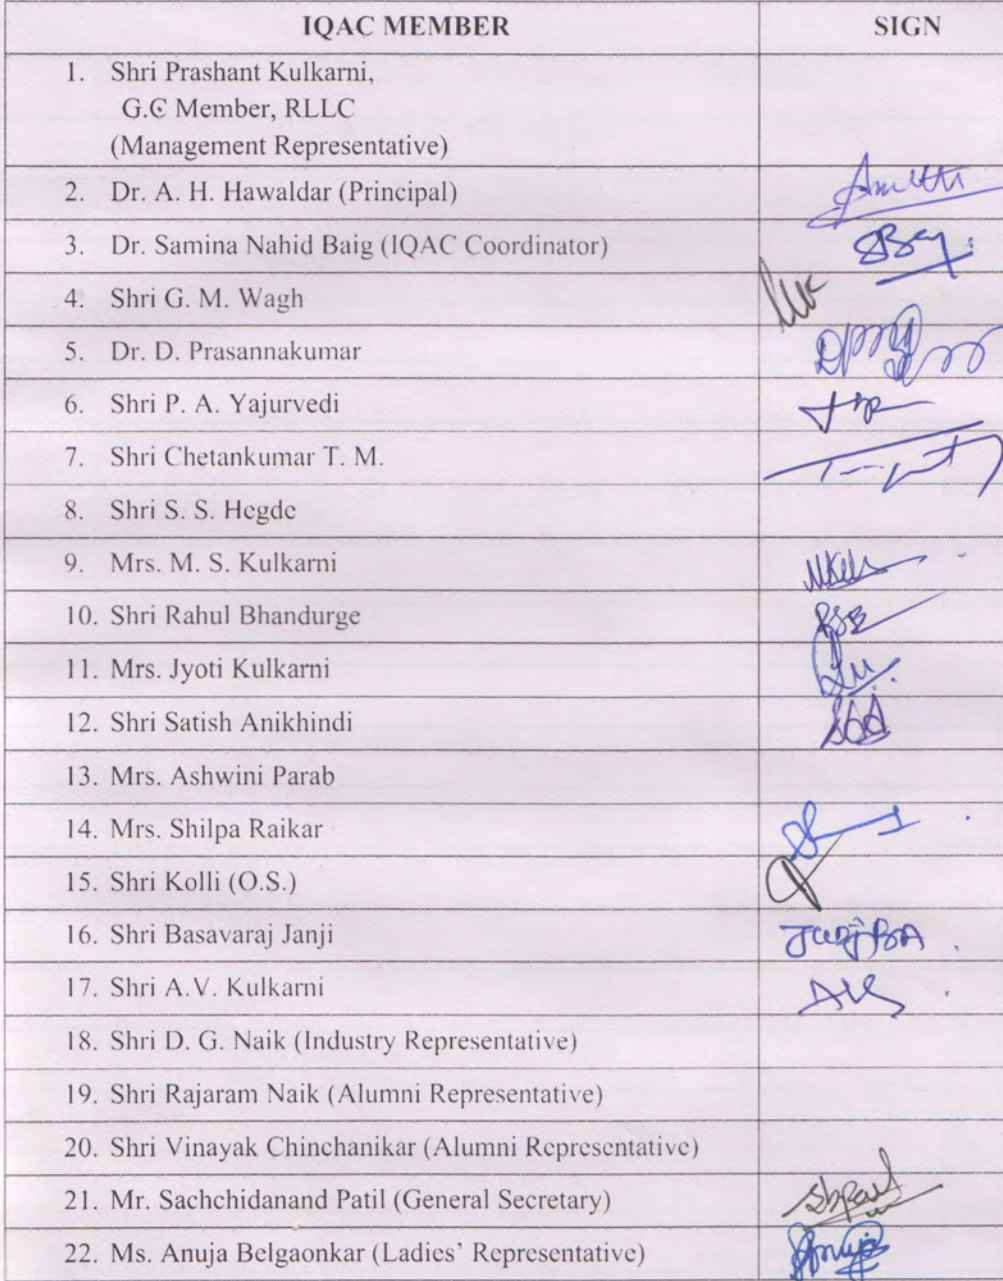 IQAC MEMBER SIGN
1. Shri Prashant Kulkarni,
G.C Member, RLLC
(Management Representative)
2. Dr. A. H. Hawaldar (Principal)
3. Dr. Samina Nahid Baig (IQAC Coordinator)
4. Shri G. M. Wagh
5. Dr. D. Prasannakumar
6. Shri P. A. Yajurvedi
7. Shri Chetankumar T. M.
8. Shri S. S. Hegde
9. Mrs. M. S. Kulkarni
10. Shri Rahul Bhandurge
11. Mrs. Jyoti Kulkarni
12. Shri Satish Anikhindi
13. Mrs. Ashwini Parab
14. Mrs. Shilpa Raikar
15. Shri Kolli (O.S.)
16. Shri Basavaraj Janji
17. Shri A.V. Kulkarni
18. Shri D. G. Naik (Industry Representative)
19. Shri Rajaram Naik (Alumni Representative)
20. Shri Vinayak Chinchanikar (Alumni Representative)
21. Mr. Sachchidanand Patil (General Secretary)
22. Ms. Anuja Belgaonkar (Ladies' Representative)